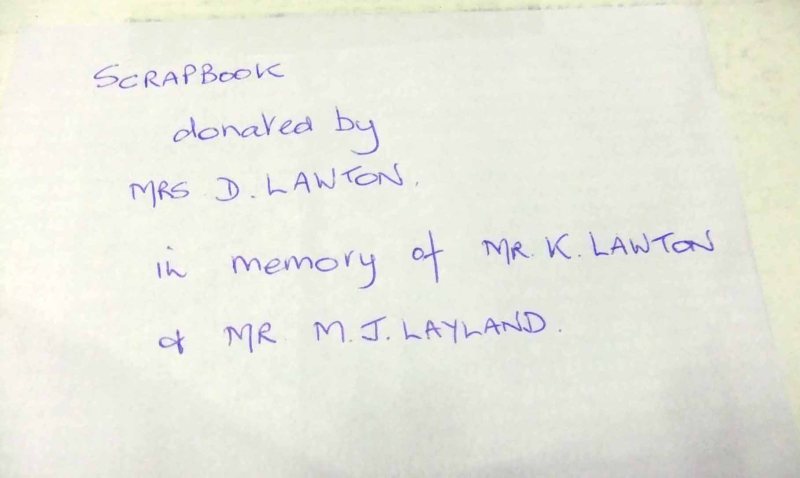 SCRAPBOOK
donated by
MRS D. LAWTON.
in memory of MR. K. LAWTON
& MR M. J. LAYLAND.